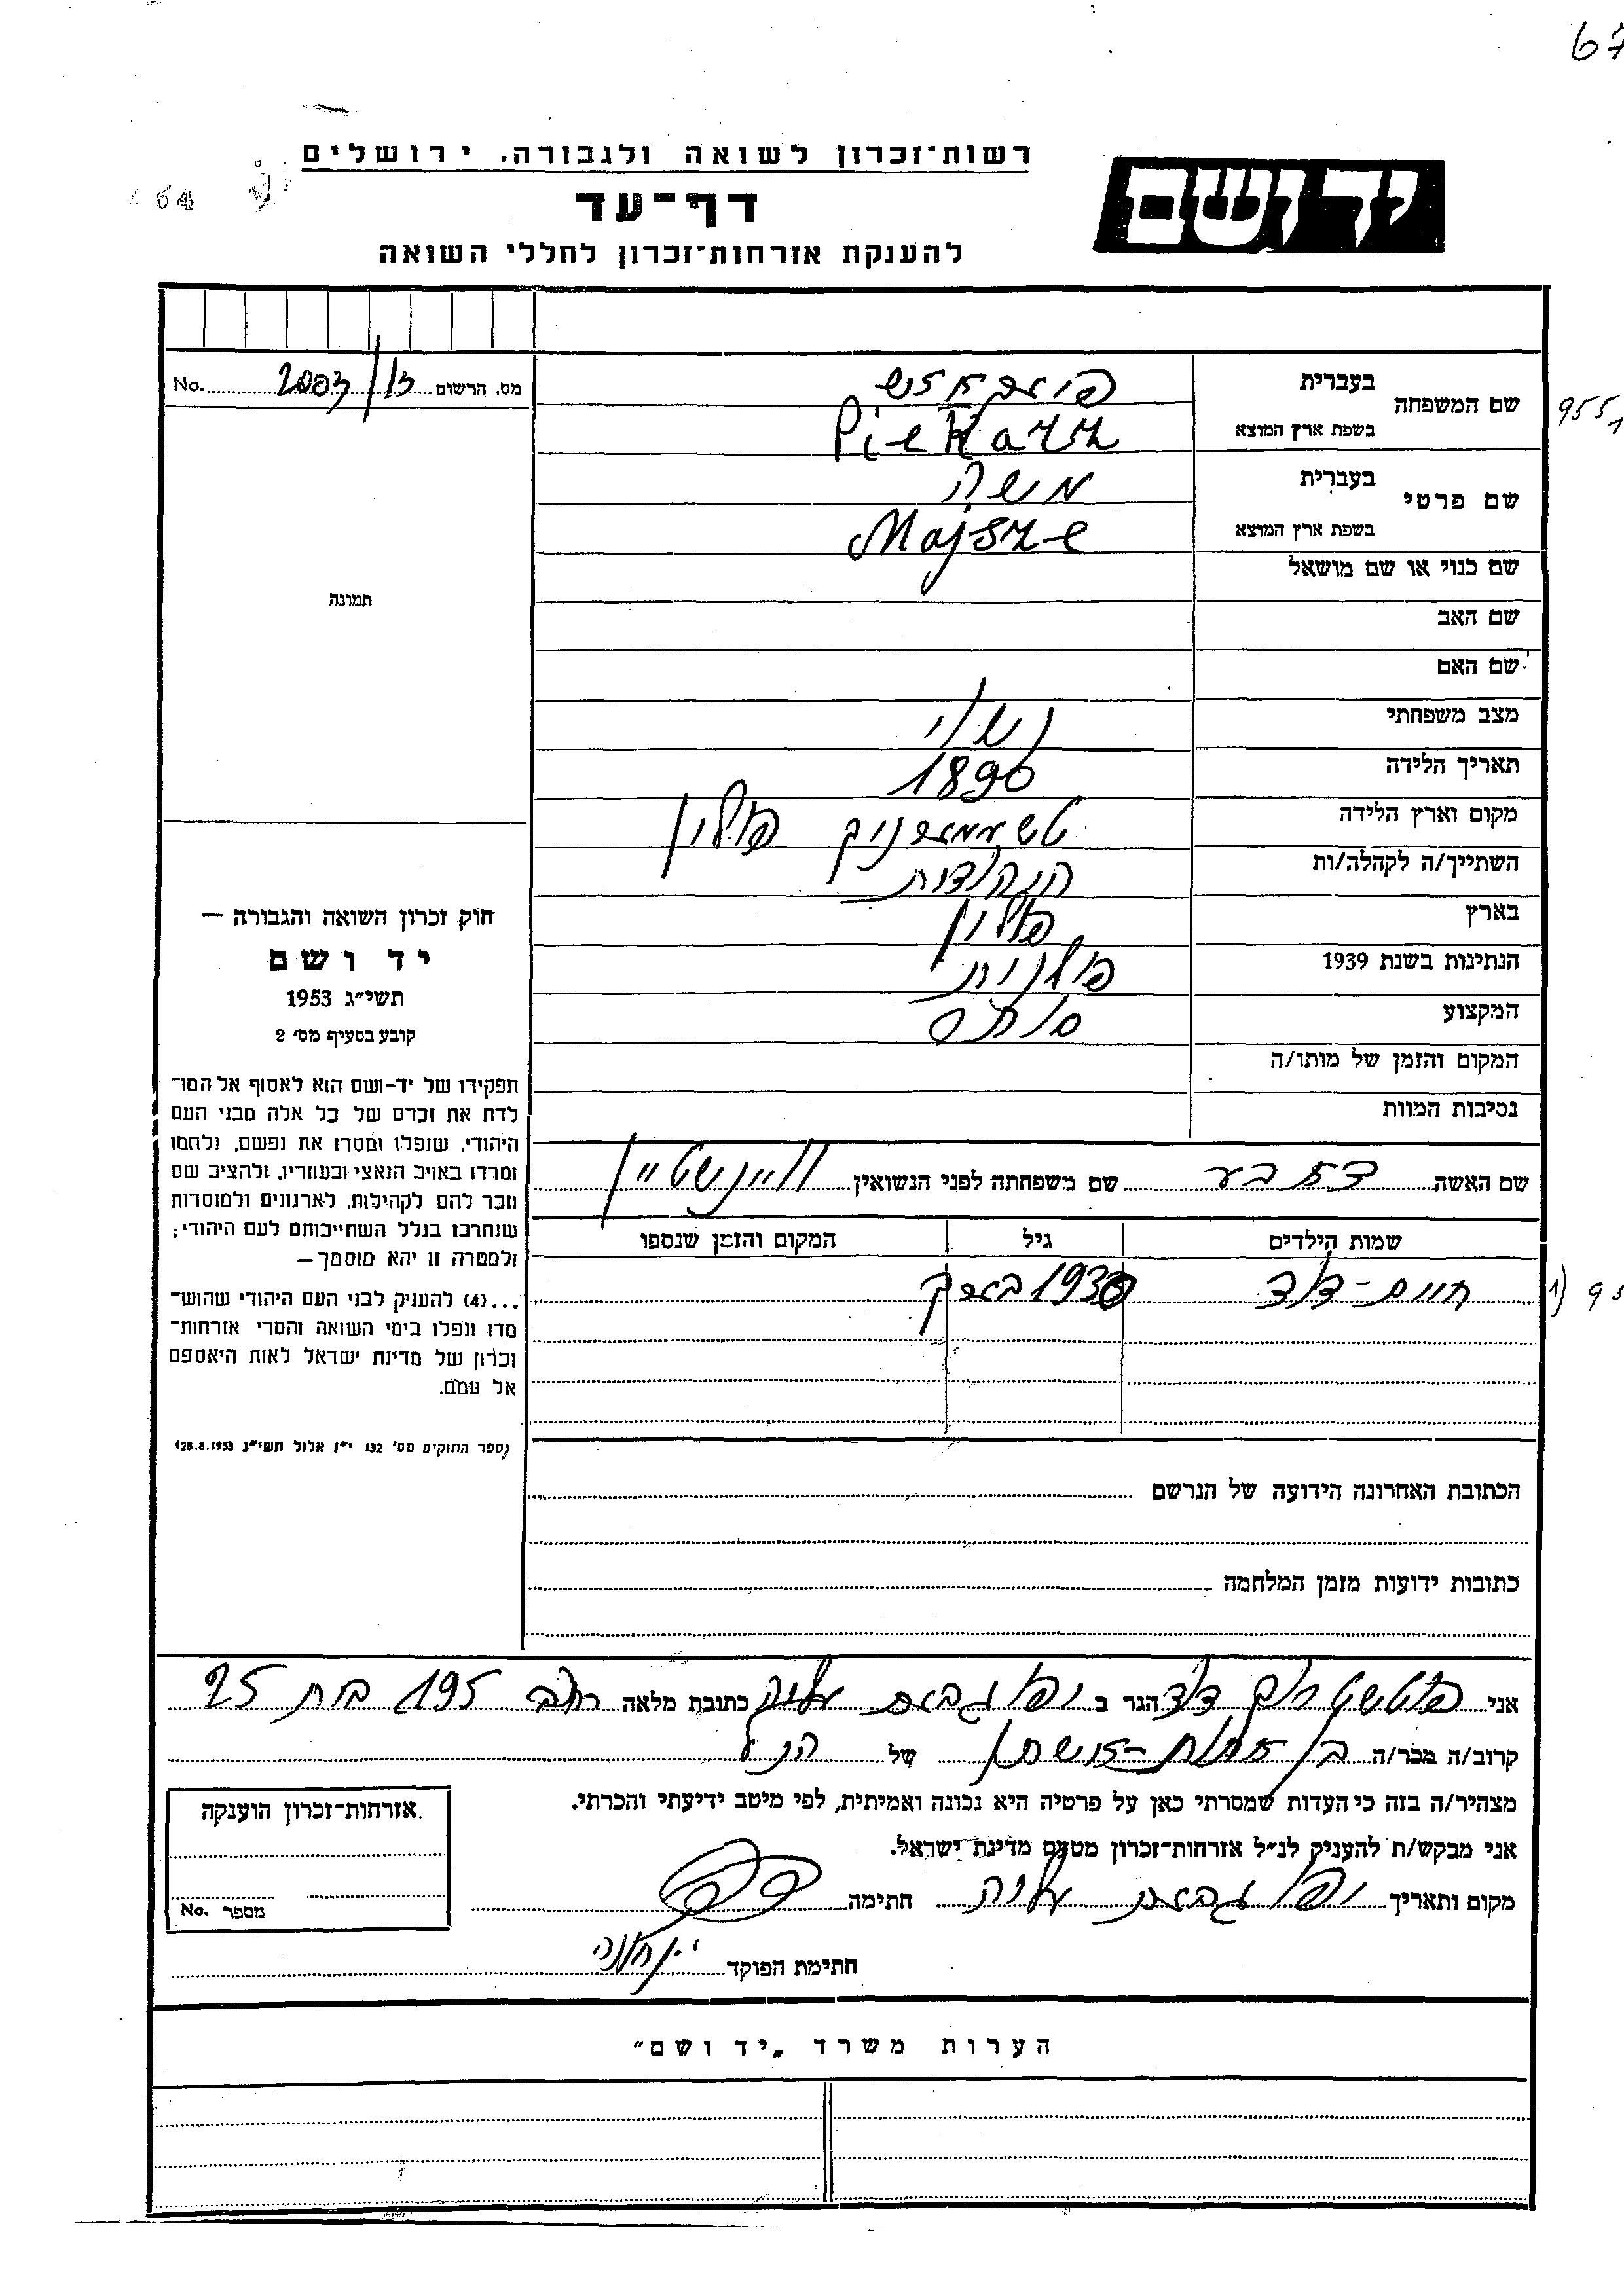 67
רשות־זכרון לשואה ולגבורה, ירושלים
יד ושם
64
דף־עד
להענקת אזרחות־זכרון לחללי השואה
מס. הרשום 13/2003 No.
שם המשפחה
בעברית
בשפת ארץ המוצא Piekarz
955
שם פרטי
בעברית משה
בשפת ארץ המוצא Majsze
שם כנוי או שם מושאל
תמונה
שם האב
שם האם
מצב משפחתי נשוי
תאריך הלידה 1890
מקום וארץ הלידה פולין
השתייך/ה לקהלה/ות
בארץ פולין
הנתינות בשנת 1939 פולנית
המקצוע סוחר
המקום והזמן של מותו/ה
נסיבות המוות
שם האשה שם משפחתה לפני הנשואין ויינשטיין
שמות הילדים גיל המקום והזמן שנספו
חיים-דוד 1930
1) 95
חוק זכרון השואה והגבורה —
יד ושם
תשי״ג 1953
קובע בסעיף מס׳ 2
תפקידו של יד-ושם הוא לאסוף אל המו־
לדת את זכרם של כל אלה מבני העם
היהודי, שנפלו ומסרו את נפשם, נלחמו
ומרדו באויב הנאצי ובעוזריו, ולהציב שם
וזכר להם לקהילות, לארגונים ולמוסדות
שנחרבו בגלל השתייכותם לעם היהודי;
ולמטרה זו יהא מוסמך —
...(4) להעניק לבני העם היהודי שהוש־
מדו ונפלו בימי השואה והמרי אזרחות־
זכרון של מדינת ישראל לאות היאספם
אל עמם.
(ספר החוקים מס׳ 132 י״ז אלול תשי״ג 28.8.1953)
הכתובת האחרונה הידועה של הנרשם
כתובות ידועות מזמן המלחמה
אני דוד הגר ב יפו גבעת עליה כתובת מלאה רחוב 195 בית 25
קרוב/ה מכר/ה בן אחות של הנ״ל
מצהיר/ה בזה כי העדות שמסרתי כאן על פרטיה היא נכונה ואמיתית, לפי מיטב ידיעתי והכרתי.
אני מבקש/ת להעניק לנ״ל אזרחות־זכרון מטעם מדינת ישראל.
מקום ותאריך יפו גבעת עליה חתימה
חתימת הפוקד
אזרחות־זכרון הוענקה
מספר No.
הערות משרד „יד ושם״